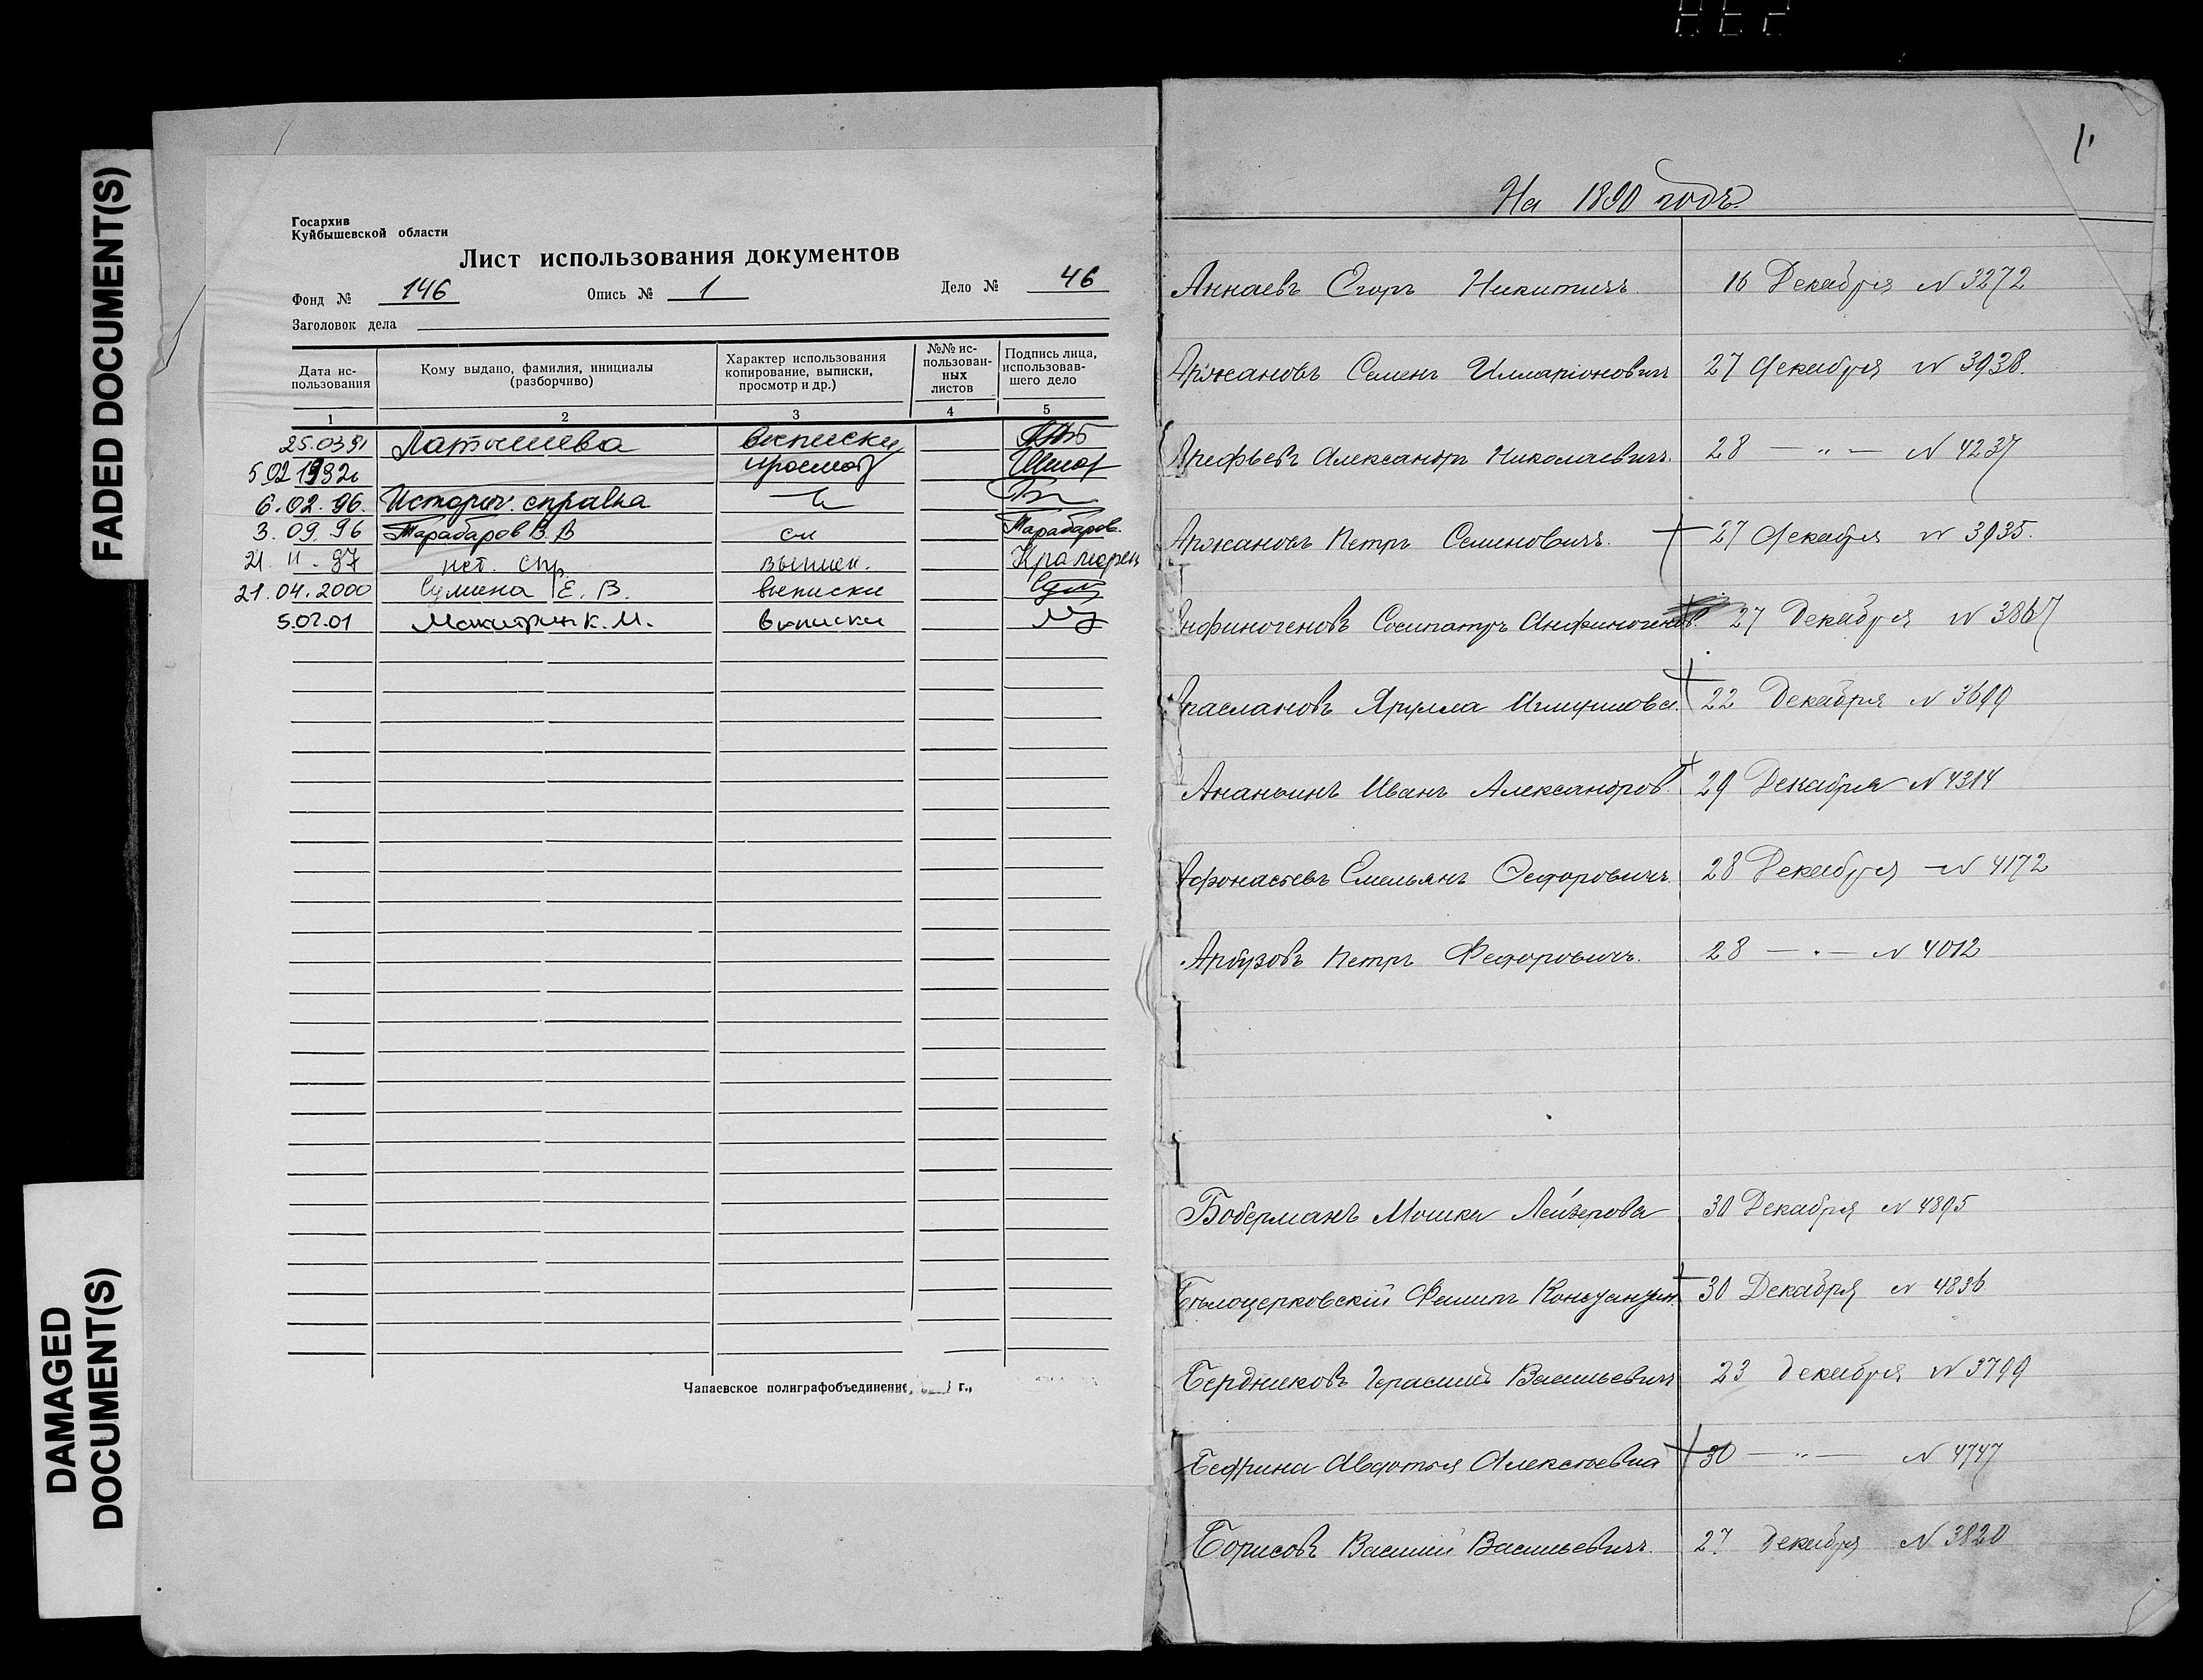 FADED DOCUMENT(S)
DAMAGED
DOCUMENT(S)
Госархив
Куйбышевской области
Лист использования документов
Фонд № 146 Опись № 1 Дело № 46
Заголовок дела
Дата ис-
пользования
Кому выдано, фамилия, инициалы
(разборчиво)
Характер использования
копирование, выписки,
просмотр и др.)
№№ ис-
пользован-
ных
листов
Подпись лица,
использовав-
шего дело
1 2 3 4 5
25.03.91 Латышева выписки
5.02 1992г просмотр
6.02.96. Историч. справка
3.09.96 Тарабаров В.В см Тарабаров.
21.11.97 ист. спр. выписк.
21.04.2000 Сумина Е. В. выписки
5.02.01 К. М. выписки
Чапаевское полиграфобъединение, г.,
1
На 1890 годъ.
Аннаевъ Егоръ Никитичъ. 16 Декабря N 3272
Аржановъ Семенъ Илларіоновичъ 27 Декабря N 3938.
Арефьевъ Александръ Николаевичъ. 28 — „ — N 4237
Аржановъ Петръ Семеновичъ. 27 Декабря N 3935.
Анфиногеновъ Сосипатръ Анфиногенов. 27 Декабря N 3867
Араслановъ Ярулла 22 Декабря N 3699
Ананьинъ Иванъ Александров. 29 Декабря N 4314
Афонасьевъ Емельянъ Федоровичъ. 28 Декабря N 4172
Арбузовъ Петръ Федоровичъ. 28 — „ — N 4012
Боберманъ Мошка Лейзерова 30 Декабря N 4895
Бѣлоцерковскій Филипъ Константин. 30 Декабря N 4836
Бердниковъ Герасимъ Васильевичъ 23 Декабря N 3799
Авдотья Алексѣевна 30 — „ — N 4747
Борисовъ Василій Васильевичъ. 27 Декабря N 3820